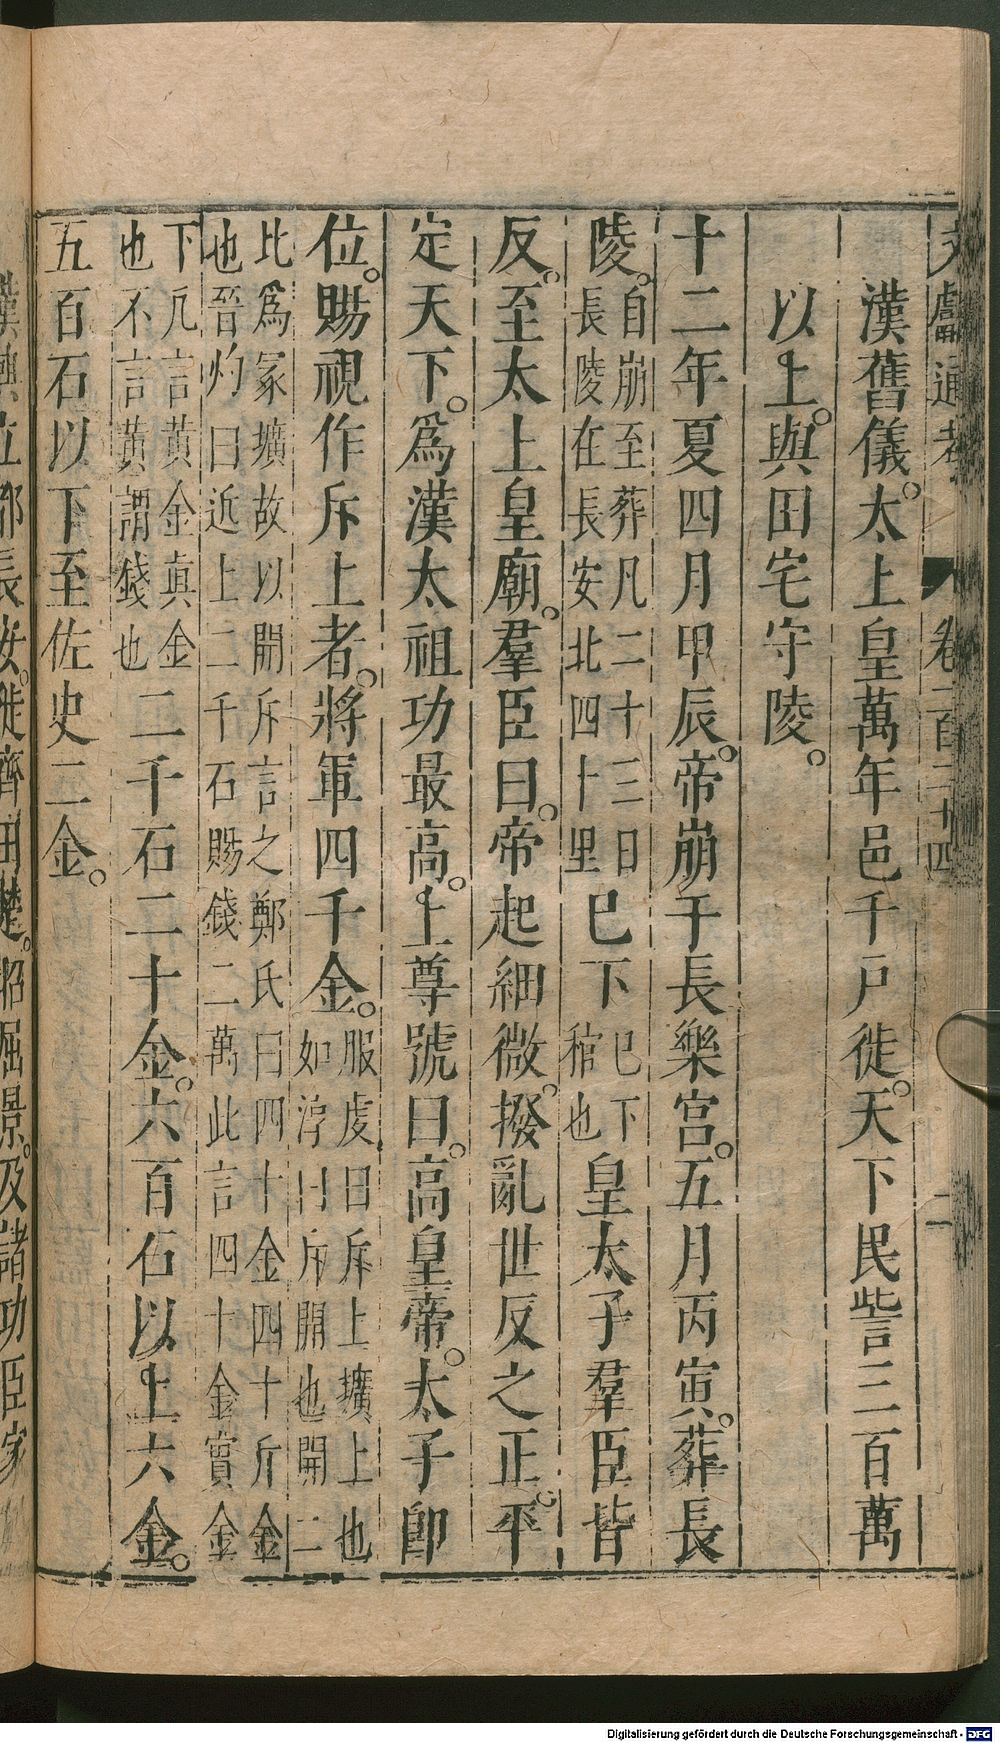 文獻通考 卷一百二十四 二
漢舊儀。太上皇萬年邑千戶徙。天下民訾三百萬
以上。與田宅守陵。
十二年夏四月甲辰。帝崩于長樂宮。五月丙寅。葬長
陵。自崩至葬凡二十三日長陵在長安北四十里已下已下棺也皇太子羣臣皆
反。至太上皇廟。羣臣曰。帝起細微。撥亂世反之正。平
定天下。爲漢太祖功最高。上尊號曰。高皇帝。太子卽
位。賜視作斥上者。將軍四千金。服虔曰斥上壙上也如淳曰斥開也開二
比爲冢壙故以開斥言之鄭氏曰四十金四十斤金也晉灼曰近上二千石賜錢二萬此言四十金實金
下凡言黃金眞金也不言黃謂錢也二千石二十金。六百石以上六金。
五百石以下至佐史二金。
漢興立都長安。徙齊田楚。昭屈景。及諸功臣家
Digitalisierung gefördert durch die Deutsche Forschungsgemeinschaft - DFG